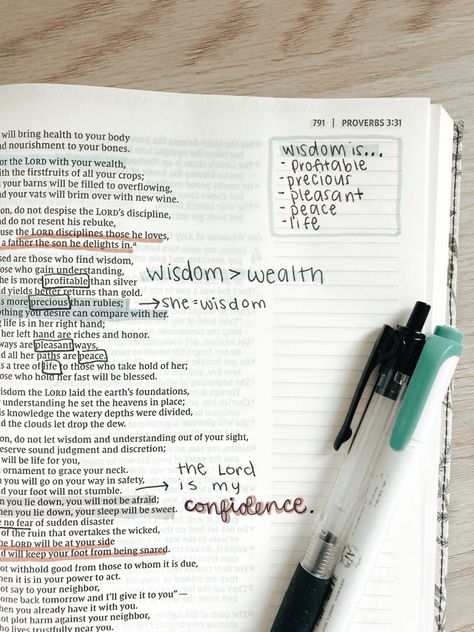 791 | PROVERBS 3:31
will bring health to your body
nd nourishment to your bones.
or the LORD with your wealth,
ith the firstfruits of all your crops;
n your barns will be filled to overflowing,
nd your vats will brim over with new wine.
on, do not despise the LORD's discipline,
nd do not resent his rebuke,
use the LORD disciplines those he loves,
a father the son he delights in.ᵃ
sed are those who find wisdom,
ose who gain understanding,
he is more profitable than silver
nd yields better returns than gold.
s more precious than rubies;
othing you desire can compare with her.
g life is in her right hand;
her left hand are riches and honor.
ways are pleasant ways,
nd all her paths are peace.
s a tree of life to those who take hold of her;
ose who hold her fast will be blessed.
wisdom the LORD laid the earth's foundations,
y understanding he set the heavens in place;
is knowledge the watery depths were divided,
nd the clouds let drop the dew.
on, do not let wisdom and understanding out of your sight,
reserve sound judgment and discretion;
will be life for you,
n ornament to grace your neck.
n you will go on your way in safety,
nd your foot will not stumble.
n you lie down, you will not be afraid;
hen you lie down, your sleep will be sweet.
no fear of sudden disaster
of the ruin that overtakes the wicked,
he LORD will be at your side
nd will keep your foot from being snared.
ot withhold good from those to whom it is due,
hen it is in your power to act.
ot say to your neighbor,
ome back tomorrow and I'll give it to you"—
hen you already have it with you.
ot plot harm against your neighbor,
ho lives trustfully near you.
wisdom is...
- profitable
- precious
- pleasant
- peace
- life
wisdom > wealth
→ she = wisdom
→ the Lord
is my
confidence.